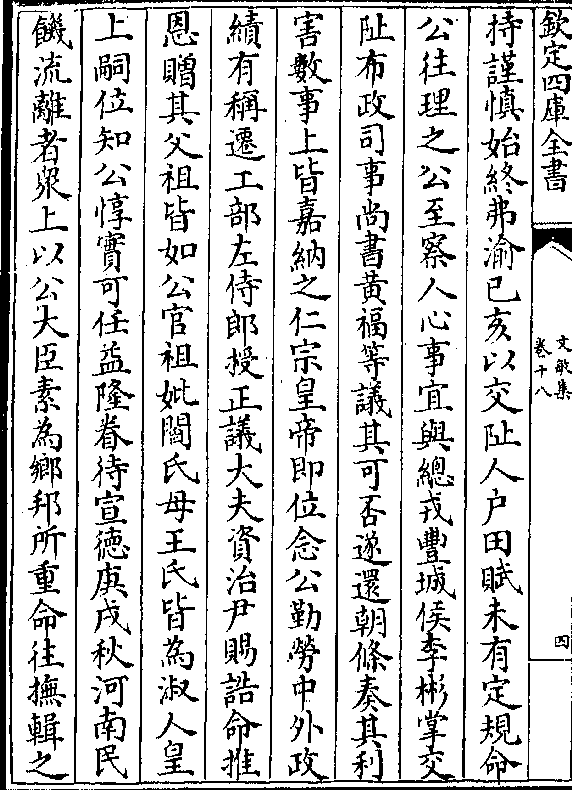 欽定四庫全書
文敏集
卷十八
四
持謹慎始終弗渝已亥以交阯人户田賦未有定規命
公往理之公至察人心事宜與總戎豐城侯李彬掌交
阯布政司事尚書黄福等議其可否遂還朝條奏其利
害數事上皆嘉納之仁宗皇帝即位念公勤勞中外政
績有稱遷工部左侍郎授正議大夫資治尹賜誥命推
恩贈其父祖皆如公官祖妣閻氏母王氏皆為淑人皇
上嗣位知公惇實可任益隆眷待宣徳庚戌秋河南民
饑流離者衆上以公大臣素為鄉邦所重命往撫輯之